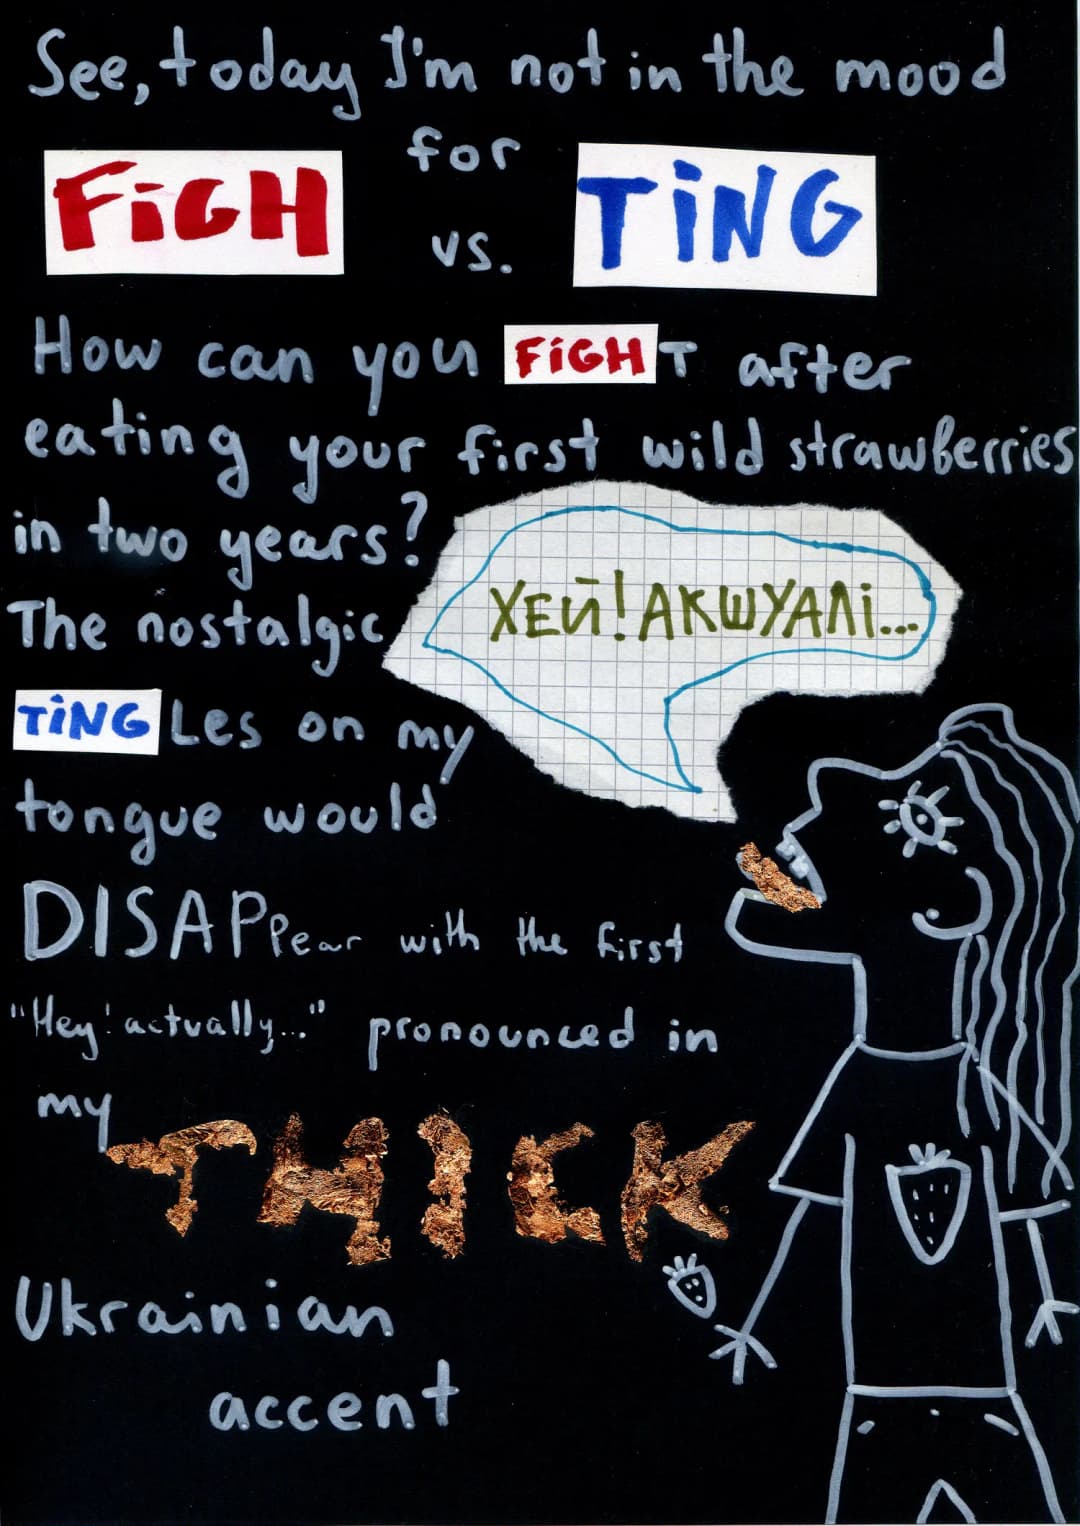 See, today I'm not in the mood
for
FiGH vs. TiNG
How can you FiGHT after
eating your first wild strawberries
in two years?
The nostalgic
ХЕЙ! АКШУАЛІ...
TiNGLes on my
tongue would
DISAPPear with the first
"Hey! actually..." pronounced in
my THICK
Ukrainian
accent